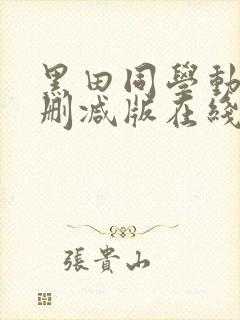 黑田同學動
刪减版在綫
張貴山